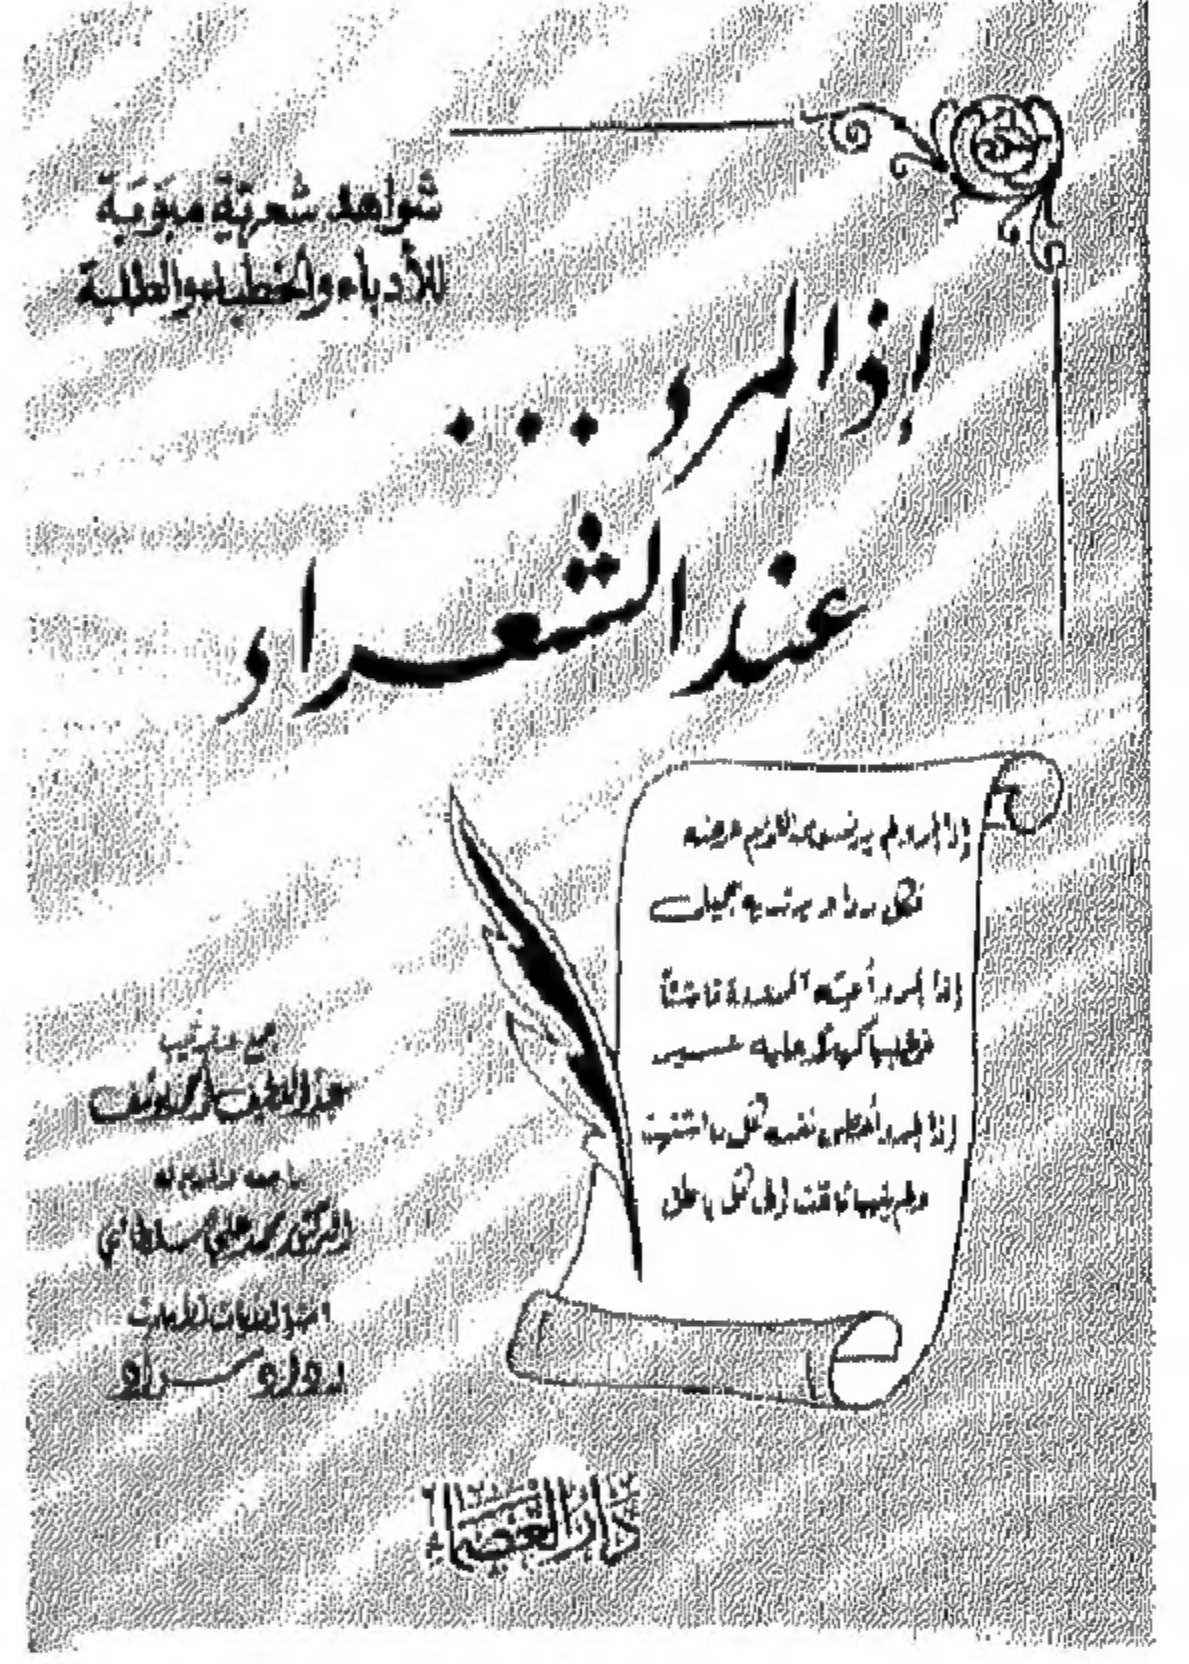 شواهد شعرية مبوّبة
للأدباء والخطباء والطلبة
إذا المرء ...
عند الشعراء
إذا المرء لم يدنس من اللؤم عرضه
فكل رداء يرتديه جميل
إذا المرء أعيته المروءة ناشئاً
فمطلبها كهلاً عليه عسير
إذا المرء أعطى نفسه كل ما اشتهت
ولم ينهها تاقت إلى كل باطل
جمع وترتيب
عبد اللطيف أحمد يوسف
راجعه وقدم له
الدكتور محمد علي سلطاني
دار العصماء